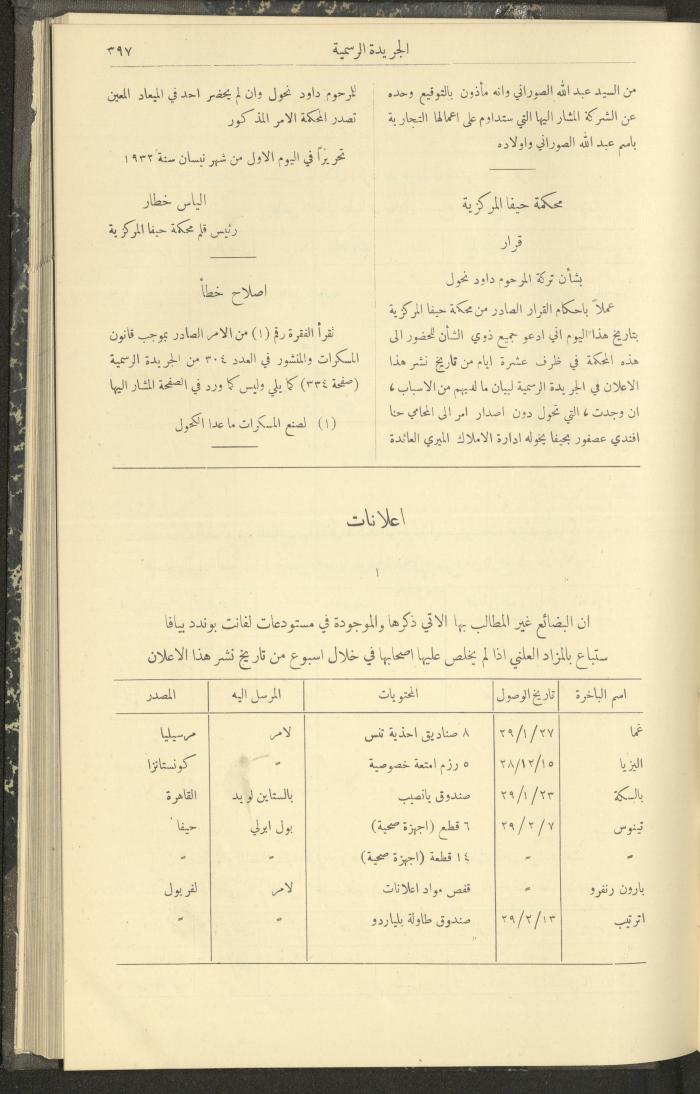 الجريدة الرسمية
٣٩٧
من السيد عبد الله الصوراني وانه مأذون بالتوقيع وحده
عن الشركة المشار اليها التي ستداوم على اعمالها التجارية
باسم عبد الله الصوراني واولاده
محكمة حيفا المركزية
قرار
بشأن تركة المرحوم داود نحول
عملاً باحكام القرار الصادر من محكمة حيفا المركزية
بتاريخ هذا اليوم اني ادعو جميع ذوي الشأن للحضور الى
هذه المحكمة في ظرف عشرة ايام من تاريخ نشر هذا
الاعلان في الجريدة الرسمية لبيان ما لديهم من الاسباب ،
ان وجدت ، التي تحول دون اصدار امر الى المحامي حنا
افندي عصفور بحيفا يخوله ادارة الاملاك الميري العائدة
للمرحوم داود نحول وان لم يحضر احد في الميعاد المعين
تصدر المحكمة الامر المذكور
تحريراً في اليوم الاول من شهر نيسان سنة ١٩٣٢
الياس خطار
رئيس قلم محكمة حيفا المركزية
اصلاح خطأ
تقرأ الفقرة رقم (١) من الامر الصادر بموجب قانون
المسكرات والمنشور في العدد ٣٠٤ من الجريدة الرسمية
(صفحة ٣٣٤) كما يلي وليس كما ورد في الصفحة المشار اليها
(١) لصنع المسكرات ما عدا الكحول
اعلانات
١
ان البضائع غير المطالب بها الاتي ذكرها والموجودة في مستودعات لفانت بوندد بيافا
ستباع بالمزاد العلني اذا لم يخلص عليها اصحابها في خلال اسبوع من تاريخ نشر هذا الاعلان
اسم الباخرة تاريخ الوصول المحتويات المرسل اليه المصدر
غما ٢٩/١/٢٧ ٨ صناديق احذية تنس لامر مرسيليا
اليزيا ٢٨/١٢/١٥ ٥ رزم امتعة خصوصية " كونستانزا
بالسكة ٢٩/١/٢٣ صندوق يانصيب بالستاين لويد القاهرة
تينوس ٢٩/٢/٧ ٦ قطع (اجهزة صحية) بول ايرلي حيفا
" " ١٤ قطعة (اجهزة صحية) " "
بارون رنفرو " قفص مواد اعلانات لامر لفربول
اترتيب ٢٩/٢/١٣ صندوق طاولة بلياردو " "